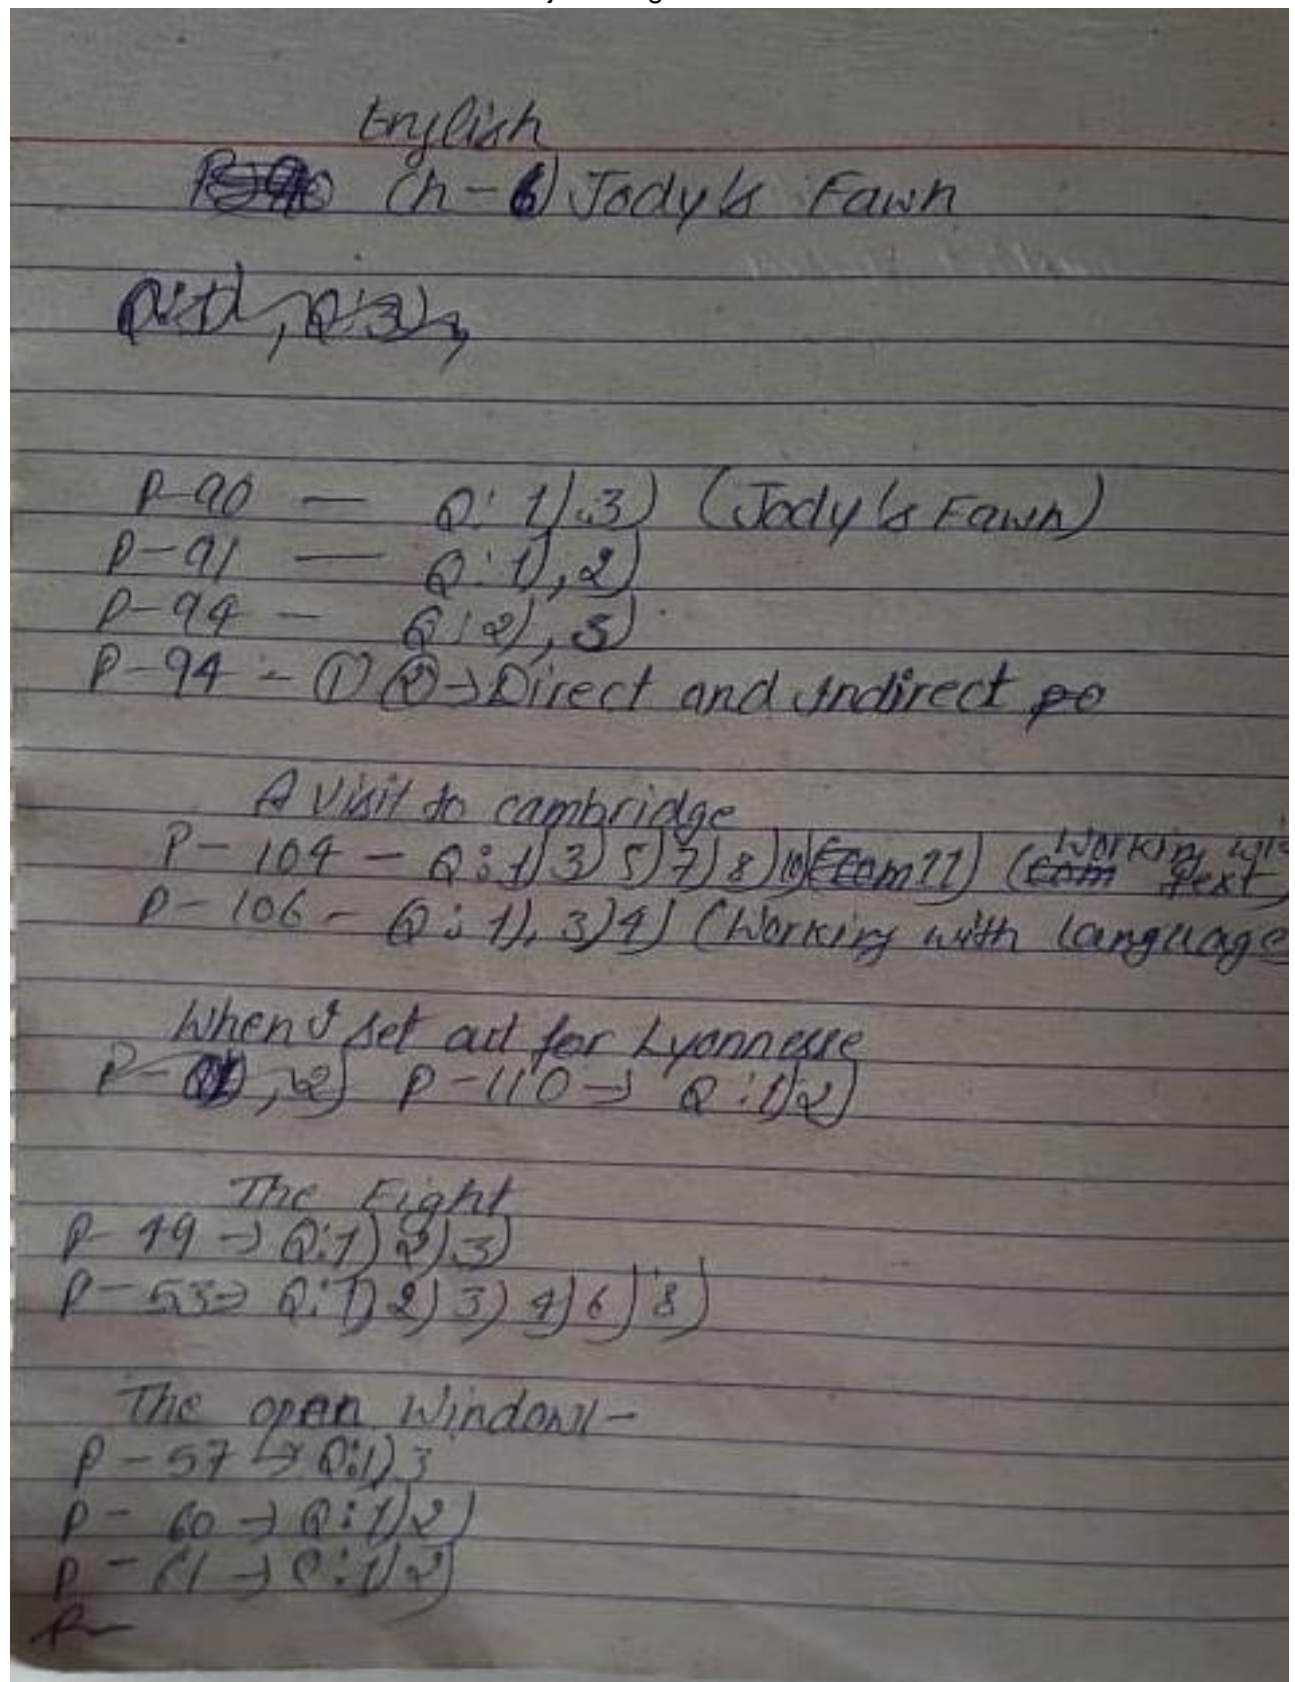 English
Ch-6) Jody's Fawn
Q:1), Q:3),
P-90 — Q: 1).3) (Jody's Fawn)
P-91 — Q:1),2)
P-94 - Q:2),3)
P-94 - ① ② → Direct and Indirect
A Visit to cambridge
P- 104 - Q:1)3)5)7)8)10) 11) (Working with text)
P-106 - Q:1),3)4) (Working with language
When I set out for Lyonnesse
P-110 → Q:1)2)
The Fight
P-49 → Q:1)2).3)
P-53→ Q:1)2)3)4)6)8)
The open Window-
P-57 → Q:1)3
P- 60 → Q:1)2)
P-61 → Q:1)2)
P-